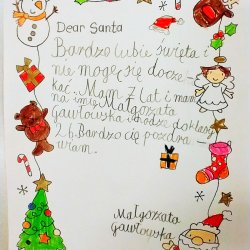 Dear Santa
Bardzo lubię święta i
nie mogę się docze-
kać. Mam 7 lat i mam
na imię Małgorzata
Gawłowska chodzę do klasy
2 b. Bardzo cię pozdra-
wiam.
Małgorzata
Gawłowska